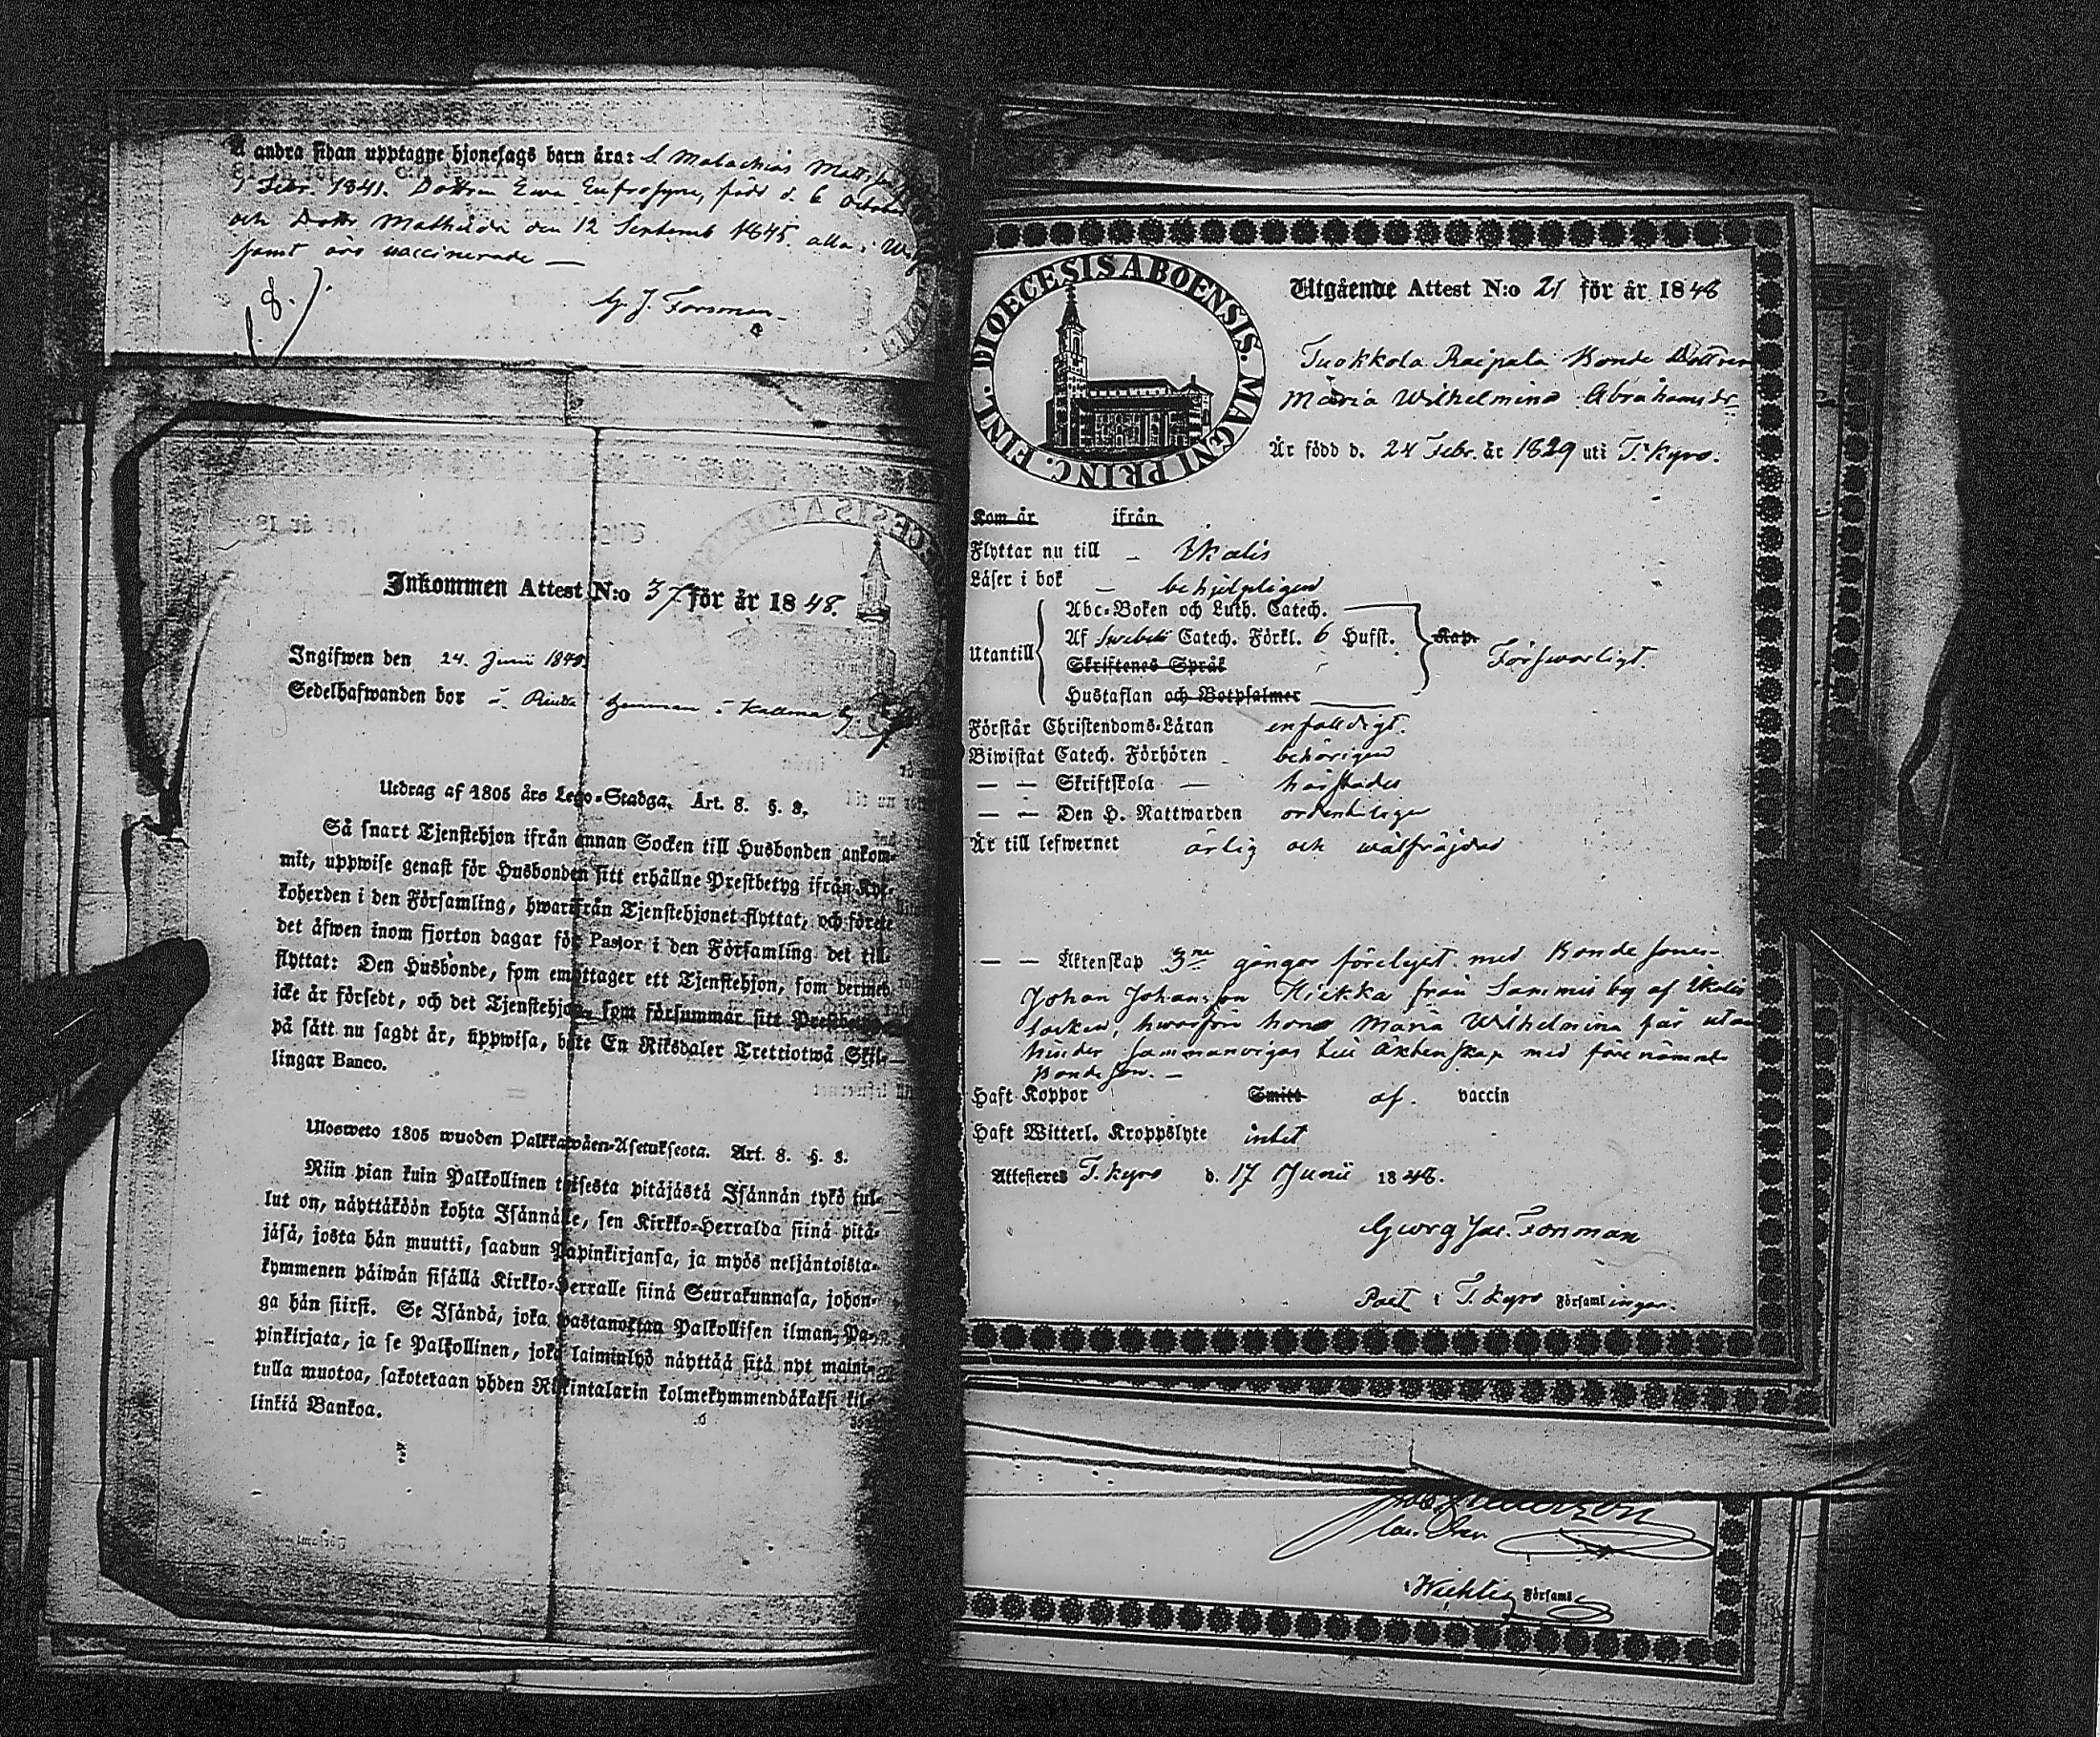 Å andra sidan upptagne hjonelags barn äro: S. Malachias Matts
1 Febr. 1841. Dottren Ewa Eufrosyne, född d. 6 October
och Dottr Mathilda den 12 Septemb 1845. alla i
samt äro vaccinerade —
G. J. Forsman
(8.)
Inkommen Attest N:o 37 för år 1848.
Ingifwen den 24. Junii 1848
Sedelhafwanden bor å hemman i by
Utdrag af 1805 års Lego-Stadga. Art. 8. §. 8.
Så snart Tjenstehjon ifrån annan Socken till Husbonden ankom-
mit, uppwise genast för Husbonden sitt erhållne Prestbetyg ifrån Kyr-
koherden i den Församling, hwarifrån Tjenstehjonet flyttat, och förete
det äfwen inom fjorton dagar för Pastor i den Församling det till-
flyttat: Den Husbonde, som emottager ett Tjenstehjon, som dermed
icke är försedt, och det Tjenstehjon, som försummar sitt Prestbetyg
på sätt nu sagdt är, uppwisa, böte En Riksdaler Trettiotwå Skil-
lingar Banco.
Ulosweto 1805 wuoden Palkkawäen-Asetuksesta. Art. 8. §. 8.
Niin pian kuin Palkollinen toisesta pitäjästä Isännän tykö tul-
lut on, näyttäköön kohta Isännälle, sen Kirkko-Herralda siinä pitä-
jäsä, josta hän muutti, saadun Papinkirjansa, ja myös neljäntoista-
kymmenen päiwän sisällä Kirkko-Herralle siinä Seurakunnasa, johon-
ga hän siirsi. Se Isändä, joka wastanottaa Palkollisen ilman Pa-
pinkirjata, ja se Palkollinen, joka laiminlyö näyttää sitä nyt maini-
tulla muotoa, sakotetaan yhden Riikintalarin kolmekymmendäkaksi kil-
linkiä Bankoa.
DIOECESIS ABOENSIS. MAGNI PRINC. FINL.
Utgående Attest N:o 21 för år 1848
Tuokkola Raipala Bonde Dottren
Maria Wilhelmina Abrahamsdr
Är född d. 24 Febr. år 1829 uti T.kyro.
Kom år ifrån
Flyttar nu till — Ikalis
Läser i bok — behjelpligen
Abc-Boken och Luth. Catech.
Utantill Af Swebelii Catech. Förkl. 6 Hufst. Kap. Förswarligt.
Skriftenes Språk
Hustaflan och Botpsalmer
Förstår Christendoms-Läran enfaldigt.
Biwistat Catech. Förhören behörigen
— — Skriftskola — härstädes
— — Den H. Nattwarden ordenteligen
Är till lefwernet ärlig och wälfräjdad
— — Äktenskap 3ne gånger förelyst med Bonde sonen
Johan Johansson Hiekka från Sammis by af Ikalis
socken, hwarföre hon Maria Wilhelmina får utan
hinder sammanvigas till Äktenskap med förenämnde
Bonde son. —
Haft Koppor Smitt af. vaccin
Haft Witterl. Kroppslyte intet
Attesteres T.kyro d. 17 Junii 1848.
Georg Jac. Forsman
Past i T.kyro Församlingar.
i Wichtis Församl